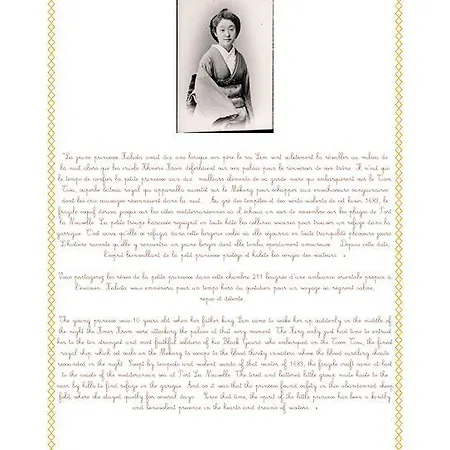 "La jeune princesse Kalista avait dix ans lorsque son père le roi Lim vint subitement la réveiller au milieu de
la nuit alors que les cruels Khmers Krom déferlaient sur son palais pour le renverser de son trône. Il n'eut que
le temps de confier la petite princesse aux dix meilleurs éléments de sa garde noire qui embarquèrent sur le Tian
Tsiu, superbe bateau royal qui appareilla aussitôt sur le Mékong pour échapper aux envahisseurs sanguinaires
dont les cris sauvages résonnaient dans la nuit... Au gré des tempêtes et des vents violents de cet hiver 1683, le
fragile esquif dériva jusque sur les côtes méditerranéennes où il échoua un soir de novembre sur les plages de Port
La Nouvelle. La petite troupe harassée rejoignit en toute hâte les collines voisines pour trouver un refuge dans la
garrigue. C'est ainsi qu'elle se réfugia dans cette bergerie isolée où elle séjourna en toute tranquillité plusieurs jours.
L'histoire raconte qu'elle y rencontra un jeune berger dont elle tomba éperdument amoureuse. Depuis cette date,
l'esprit bienveillant de la petite princesse protège et habite les songes des visiteurs. »
Vous partagerez les rêves de la petite princesse dans cette chambre 211 baignée d'une ambiance orientale propice à
l'évasion. Kalista vous emmènera pour un temps hors du quotidien pour un voyage où règnent calme,
repos et détente.
The young princess was 10 years old when her father king Lim came to wake her up suddenly in the middle of
the night the Kmer Krom were attacking the palace at that very moment. The King only just had time to entrust
her to the ten strongest and most faithful soldiers of his Black Guard who embarqued on the Tian Tsiu, the finest
royal ship, which set sails on the Mekong to escape to the blood thirsty invaders whose blood curdling shouts
resounded in the night. Swept by tempests and violent winds of that winter of 1683, the fragile craft came at last
to the coasts of the mediterranean sea at Port La Nouvelle. The tired and battered little group made haste to the
near by hills to find refuge in the garrigue. And so it was that the princess found safety in this abandoned sheep
fold where she stayed quietly for several days. Since that time, the spirit of the little princess has been a kindly
and benevolent presence in the hearts and dreams of visitors.. »